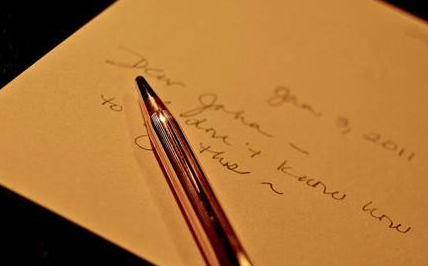 Jan 3, 2011
Dear John –
I don't know how
to this ~